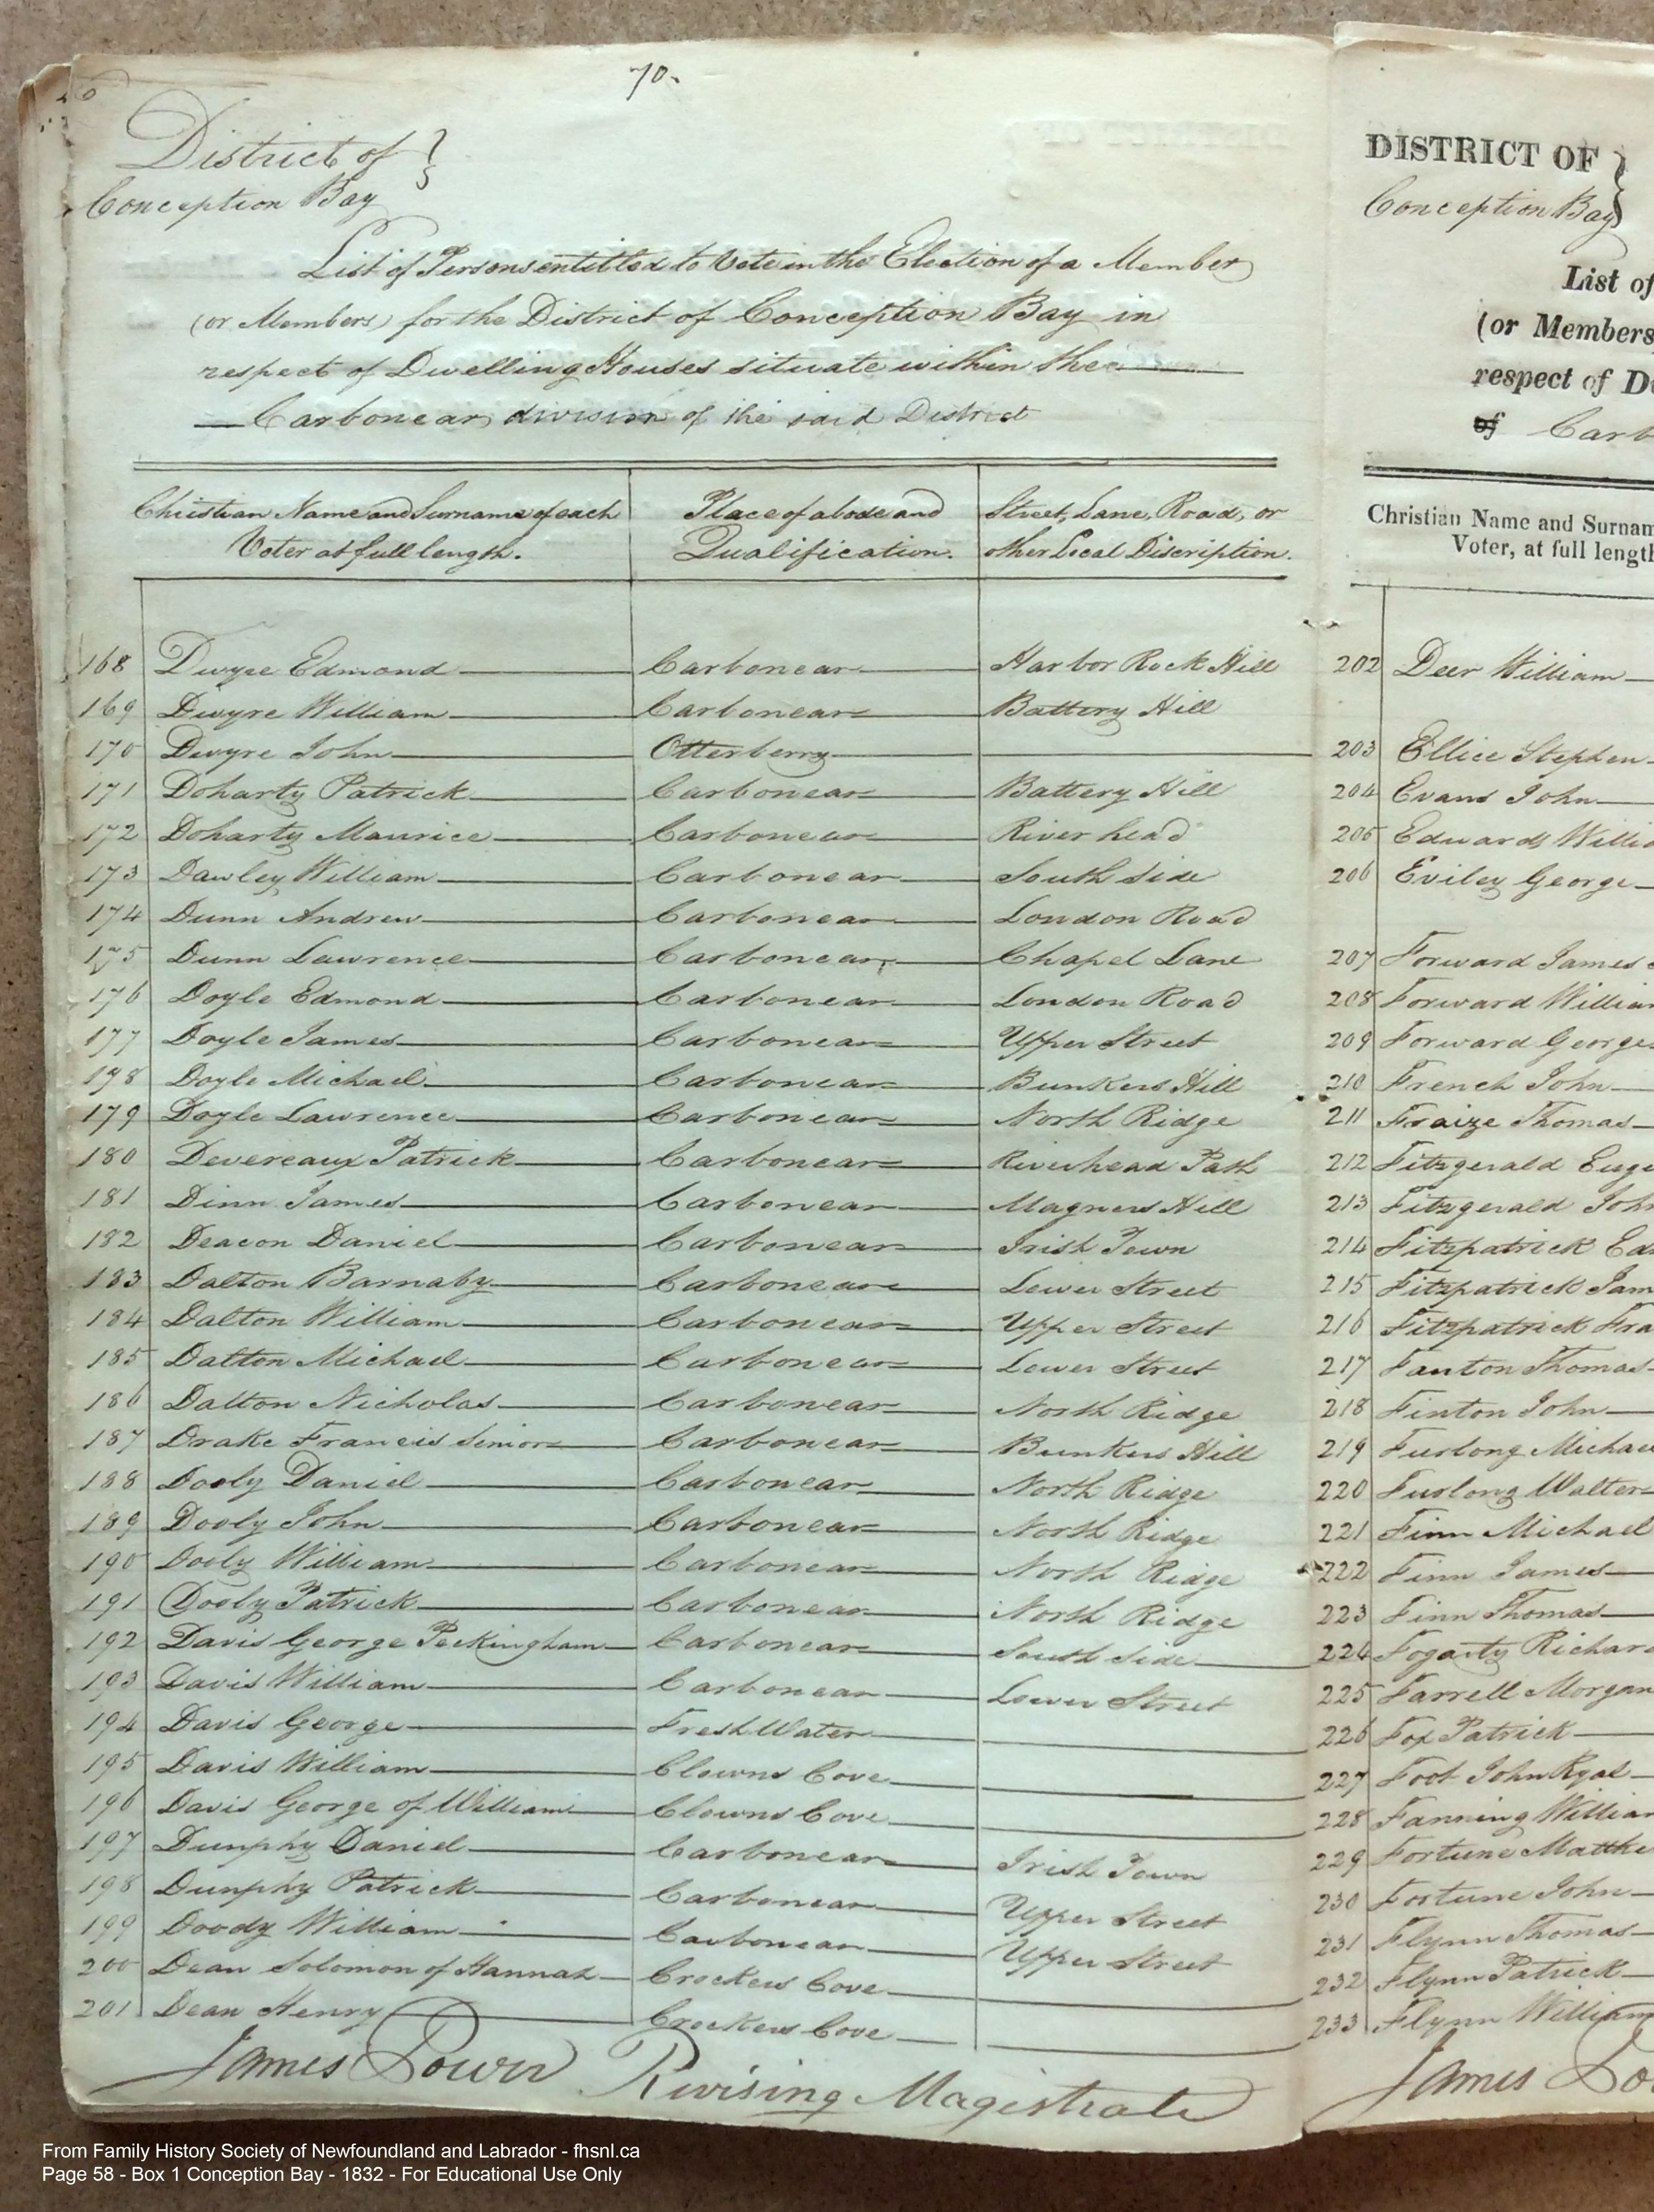 70.
District of }
Conception Bay
List of Persons entitled to Vote in the Election of a Member
(or Members) for the District of Conception Bay in
respect of Dwelling Houses situate within the
Carbonear division of the said District
Christian Name and Surname of each Voter at full length. | Place of abode and Qualification. | Street, Lane, Road, or other Local Discription.
168 Dwyre Edmond Carbonear Harbor Rock Hill
169 Dwyre William Carbonear Battery Hill
170 Dwyre John Otterberry
171 Doharty Patrick Carbonear Battery Hill
172 Doharty Maurice Carbonear River head
173 Dawley William Carbonear South Side
174 Dunn Andrew Carbonear London Road
175 Dunn Lawrence Carbonear Chapel Lane
176 Doyle Edmond Carbonear London Road
177 Doyle James Carbonear Upper Street
178 Doyle Michael Carbonear Bunkers Hill
179 Doyle Lawrence Carbonear North Ridge
180 Devereaux Patrick Carbonear Riverhead Path
181 Dinn James Carbonear Magners Hill
182 Deacon Daniel Carbonear Irish Town
183 Dalton Barnaby Carbonear Lower Street
184 Dalton William Carbonear Upper Street
185 Dalton Michael Carbonear Lower Street
186 Dalton Nicholas Carbonear North Ridge
187 Drake Francis Senior Carbonear Bunkers Hill
188 Dooly Daniel Carbonear North Ridge
189 Dooly John Carbonear North Ridge
190 Dooly William Carbonear North Ridge
191 Dooly Patrick Carbonear North Ridge
192 Davis George Peckingham Carbonear South Side
193 Davis William Carbonear Lower Street
194 Davis George Fresh Water
195 Davis William Clowns Cove
196 Davis George of William Clowns Cove
197 Dunphy Daniel Carbonear Irish Town
198 Dunphy Patrick Carbonear Upper Street
199 Doody William Carbonear Upper Street
200 Dean Solomon of Hannah Crockers Cove
201 Dean Henry Crockers Cove
James Power Revising Magistrate
DISTRICT OF }
Conception Bay
List of
(or Members
respect of D
of Carb
Christian Name and Surnam
Voter, at full lengt
202 Deer William
203 Ellice Stephen
204 Evans John
205 Edwards Willi
206 Eviley George
207 Forward James
208 Forward William
209 Forward George
210 French John
211 Fraize Thomas
212 Fitzgerald Euge
213 Fitzgerald John
214 Fitzpatrick Ed
215 Fitzpatrick Jam
216 Fitzpatrick Fra
217 Fanton Thomas
218 Finton John
219 Furlong Michae
220 Furlong Walter
221 Finn Michael
222 Finn James
223 Finn Thomas
224 Fogarty Richar
225 Farrell Morgan
226 Fox Patrick
227 Foot John Ryal
228 Fanning William
229 Fortune Matthe
230 Fortune John
231 Flynn Thomas
232 Flynn Patrick
233 Flynn William
James Po
From Family History Society of Newfoundland and Labrador - fhsnl.ca
Page 58 - Box 1 Conception Bay - 1832 - For Educational Use Only